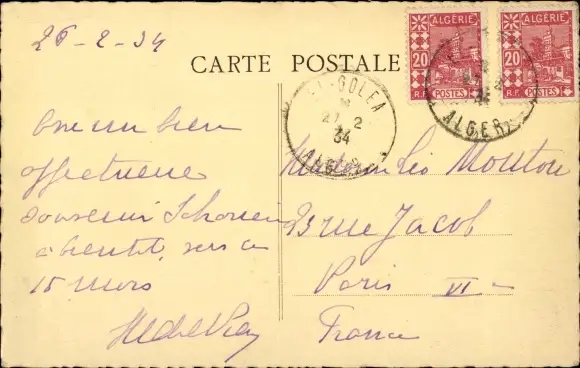 26-2-34
CARTE POSTALE
ALGÉRIE
20
R.F. POSTES
ALGÉRIE
20
R.F. POSTES
EL-GOLEA
27 2
34
ALGER
ALGER
un bien
affectueux
souvenir
à bientôt, vers le
15 mars
Léo Mouton
23 rue Jacob
Paris VI
France